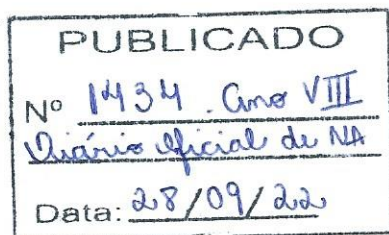 PUBLICADO
Nº 1434 . Ano VIII
Diário Oficial de NA
Data: 28/09/22